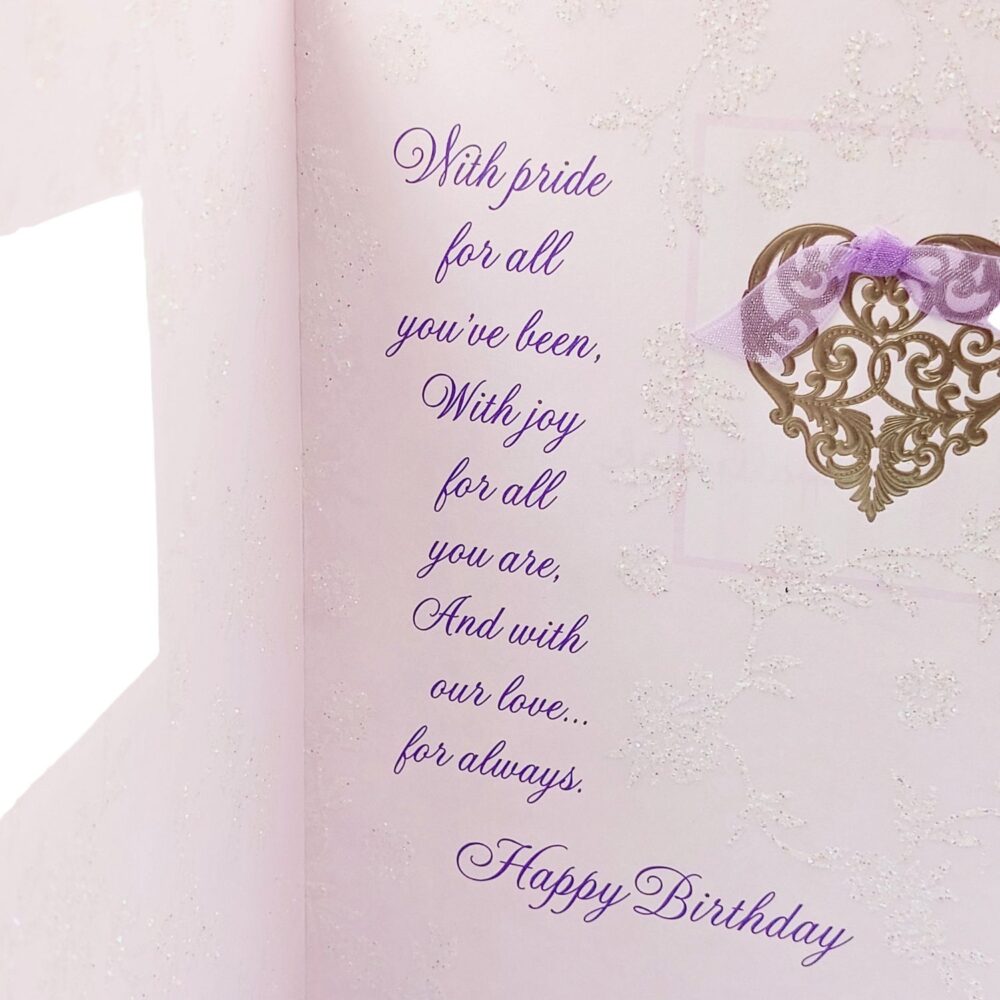 With pride
for all
you've been,
With joy
for all
you are,
And with
our love...
for always.
Happy Birthday